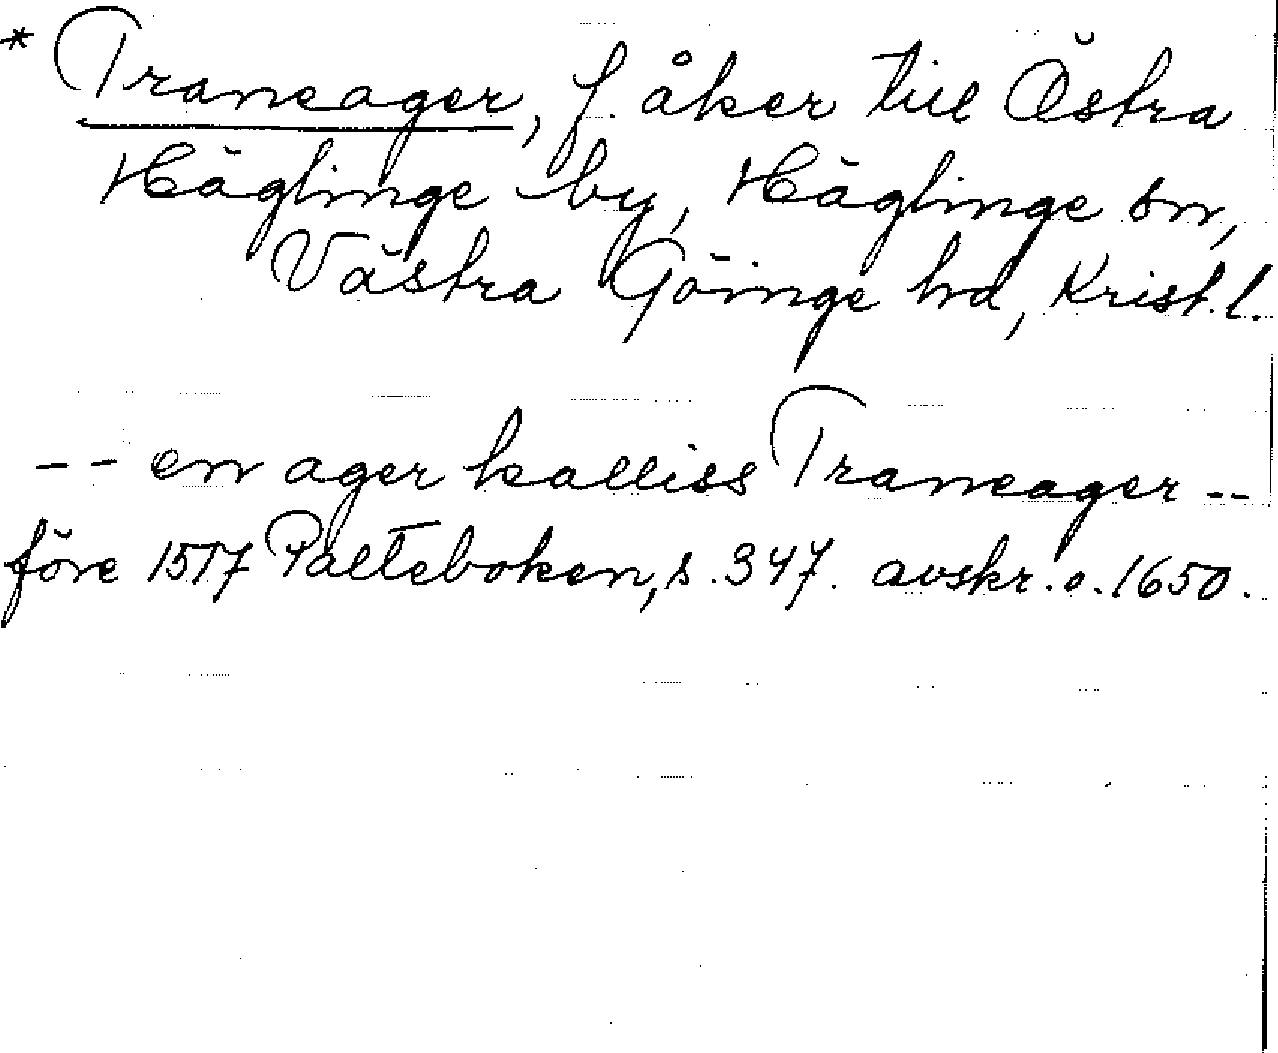 * Traneager, f. åker till Östra
Häglinge by, Häglinge sn,
Västra Göinge hd, Krist. l.
-- en ager kalliss Traneager --
före 1517 Palteboken, s. 347. avskr. o. 1650.